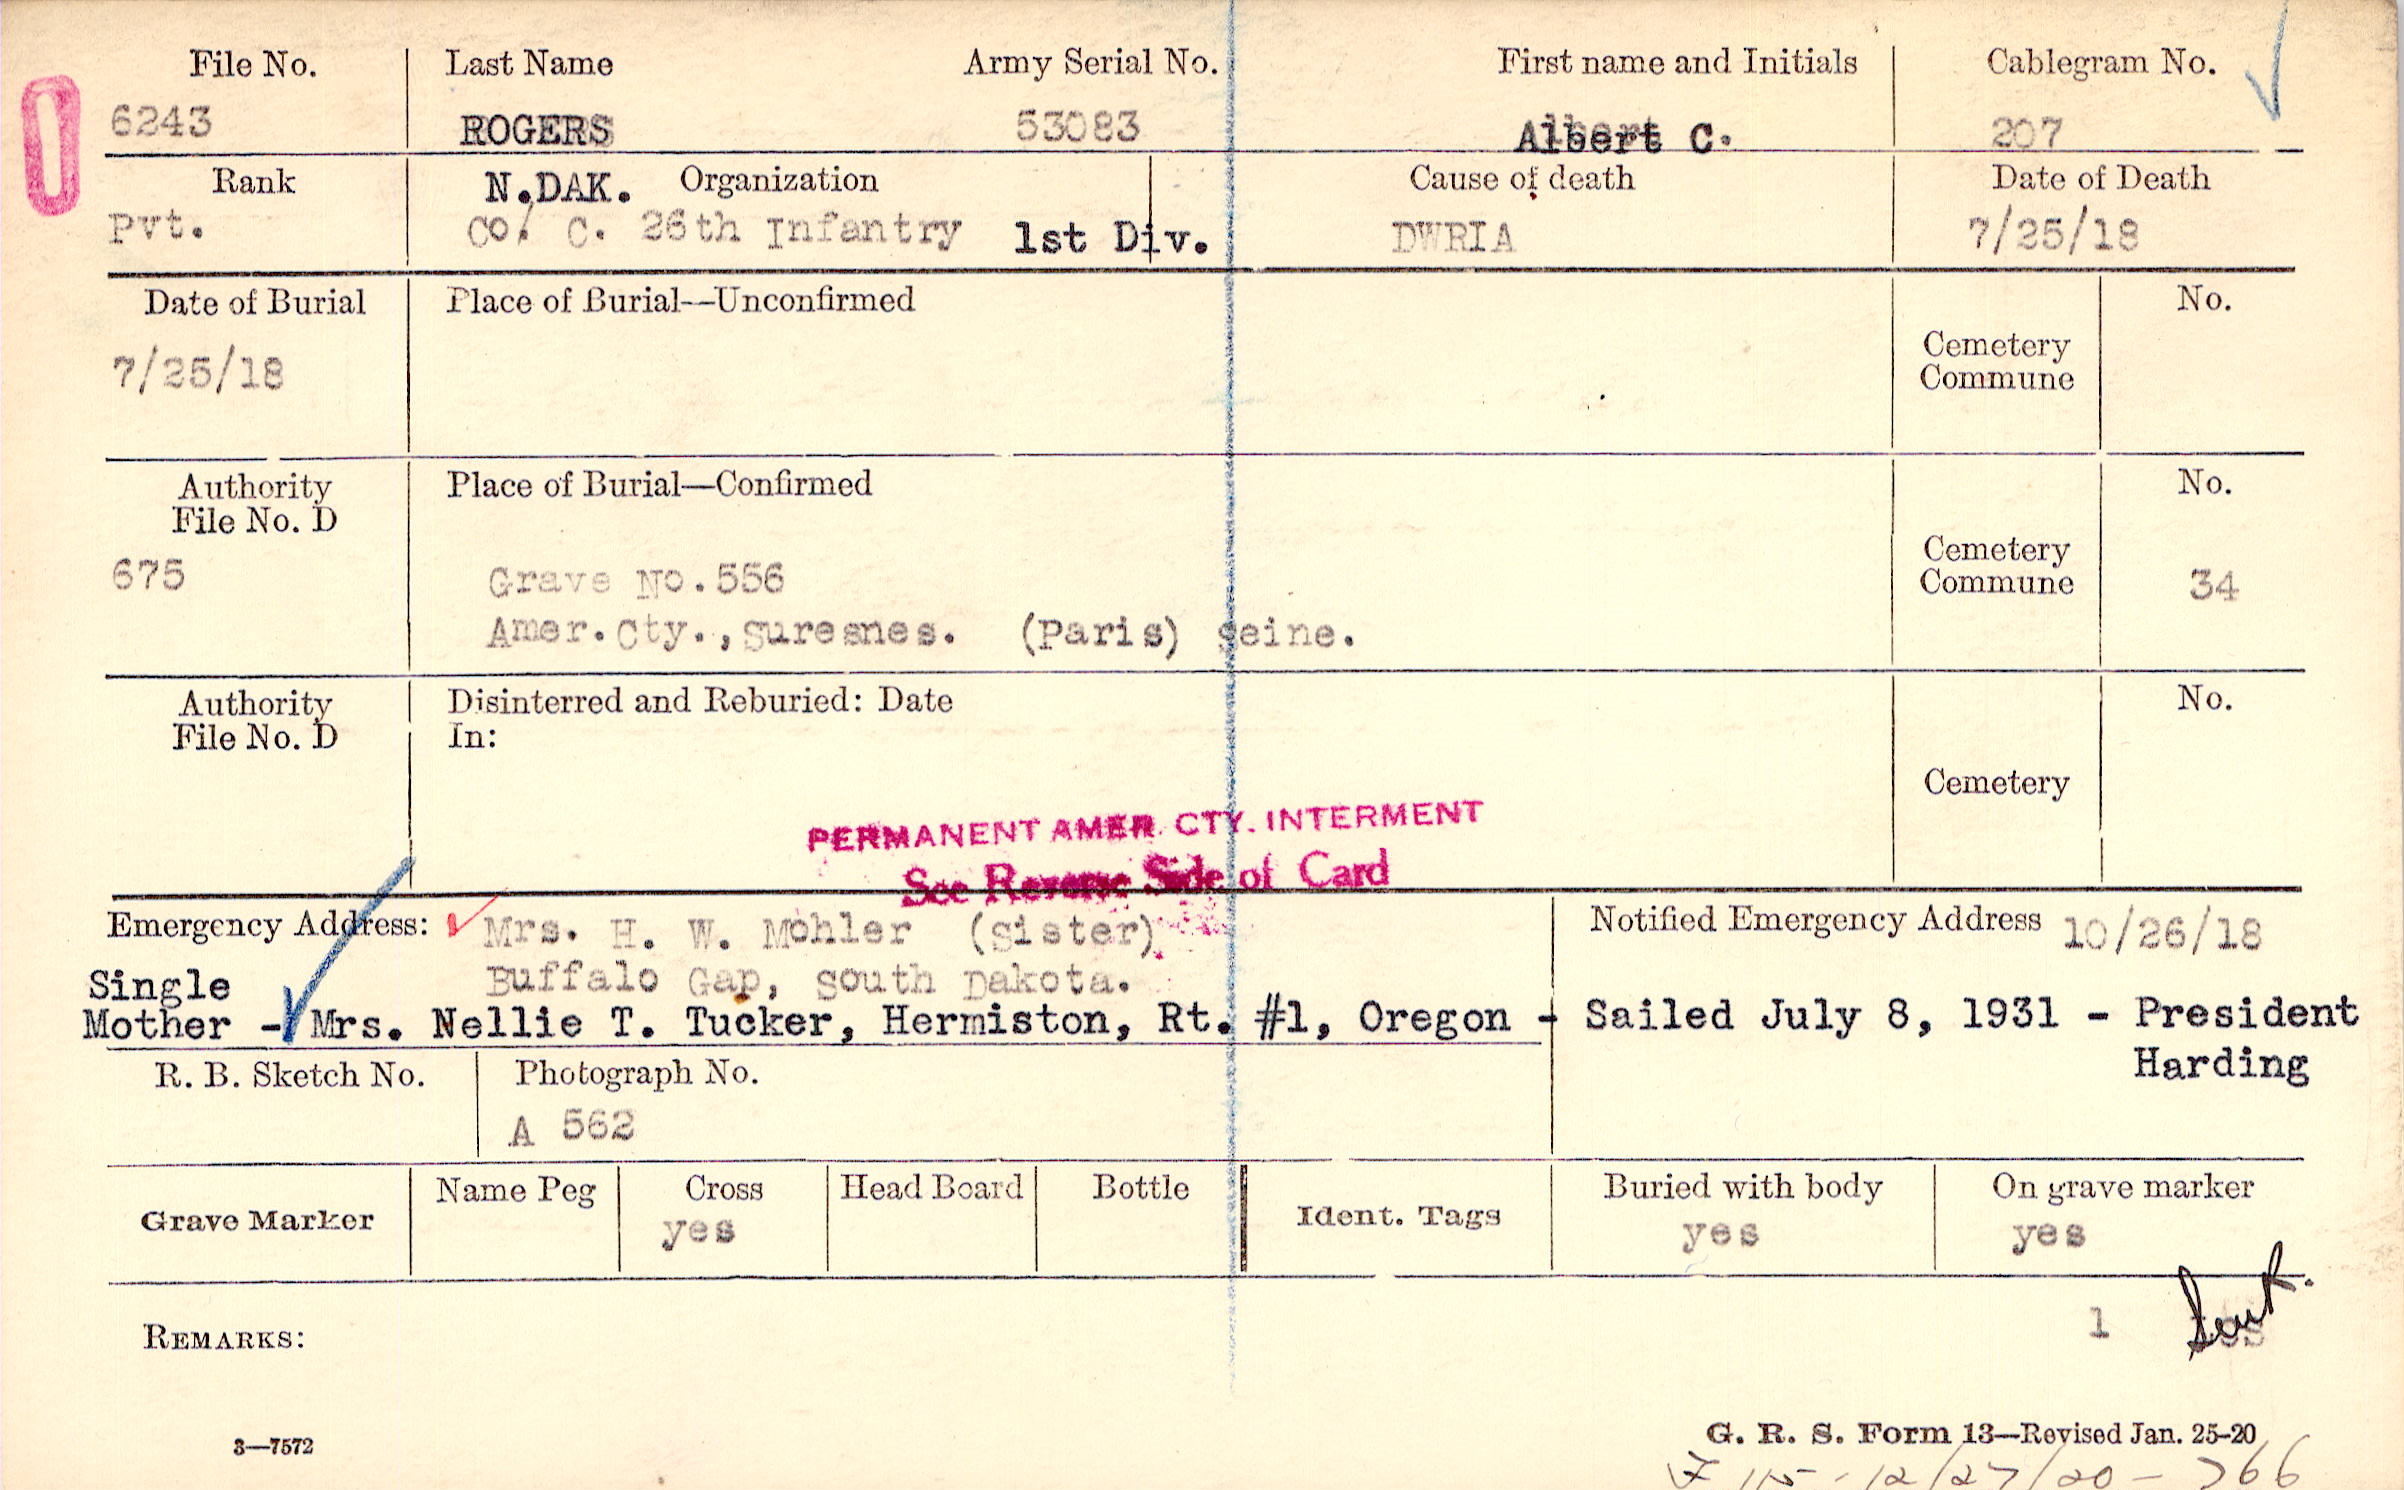 File No. Last Name Army Serial No. First name and Initials Cablegram No.
6243 ROGERS 53083 Albert C. 207
Rank N.DAK. Organization Cause of death Date of Death
Pvt. Co. C. 26th Infantry 1st Div. DWRIA 7/25/18
Date of Burial Place of Burial—Unconfirmed No.
7/25/18 Cemetery
Commune
Authority Place of Burial—Confirmed No.
File No. D
675 Grave No.556 Cemetery
Commune 34
Amer.Cty.,Suresnes. (Paris) Seine.
Authority Disinterred and Reburied: Date No.
File No. D In:
Cemetery
PERMANENT AMER. CTY. INTERMENT
See Reverse Side of Card
Emergency Address: Mrs. H. W. Mohler (Sister) Notified Emergency Address 10/26/18
Buffalo Gap, South Dakota.
Single
Mother - Mrs. Nellie T. Tucker, Hermiston, Rt. #1, Oregon - Sailed July 8, 1931 - President
Harding
R. B. Sketch No. Photograph No.
A 562
Grave Marker Name Peg Cross Head Board Bottle Ident. Tags Buried with body On grave marker
yes yes yes
REMARKS: 1
3—7572 G. R. S. Form 13—Revised Jan. 25-20
12/27/20 - 766